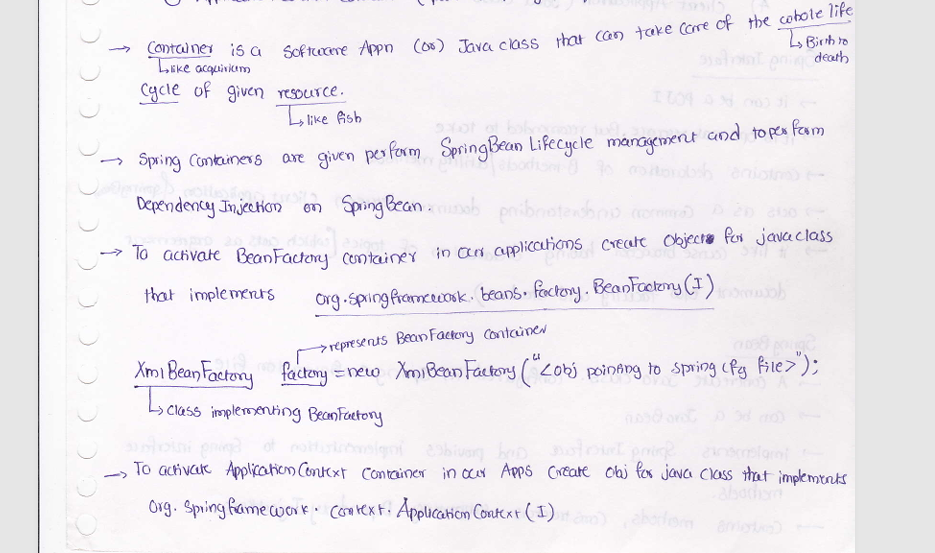 → Container is a Software Appn (or) Java class that can take care of the whole life
↳ like acquirium
↳ Birth to death
cycle of given resource.
↳ like fish
→ Spring Containers are given perform SpringBean Lifecycle management and to perform
Dependency Injection on SpringBean.
→ To activate BeanFactory container in our applications create Object for java class
that implements org.springframework.beans.factory.BeanFactory(I)
→ represents BeanFactory Container
XmlBeanFactory factory = new XmlBeanFactory("<obj pointing to spring cfg file>");
↳ class implementing BeanFactory
→ To activate ApplicationContext Container in our Apps Create obj for java class that implements
Org.springframework.Context.ApplicationContext(I)